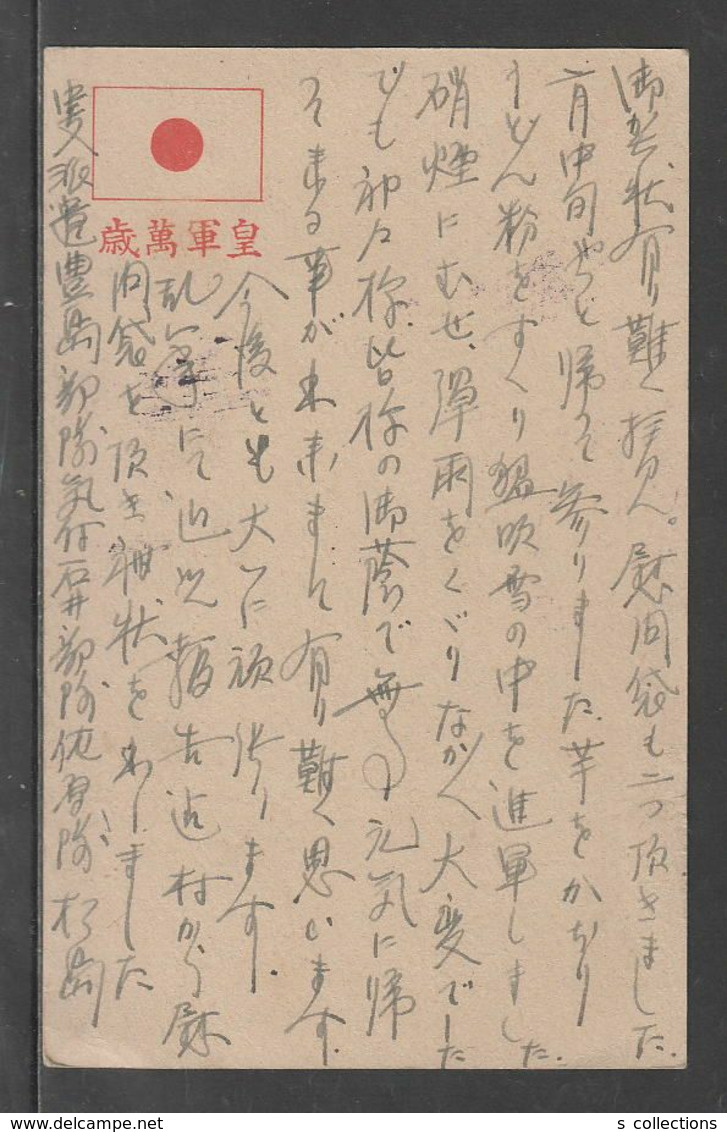 御芳状有り難く拝見。慰問袋も二つ頂きました。
二月中旬やっと帰って参りました。芋をかぢり
うどん粉をすくり猛吹雪の中を進軍しました。
硝煙にむせ、弾雨をくぐりなかなか大変でした
でも神々様、皆様の御蔭で無事元気に帰
って来る事が出来まして有り難く思ひます。
今後とも大いに頑張ります。
乱筆にて近況報告 村から慰
問袋を頂き礼状を出しました
皇軍萬歳
派遣豊島部隊気付石井部隊 隊
s collections
www.delcampe.net